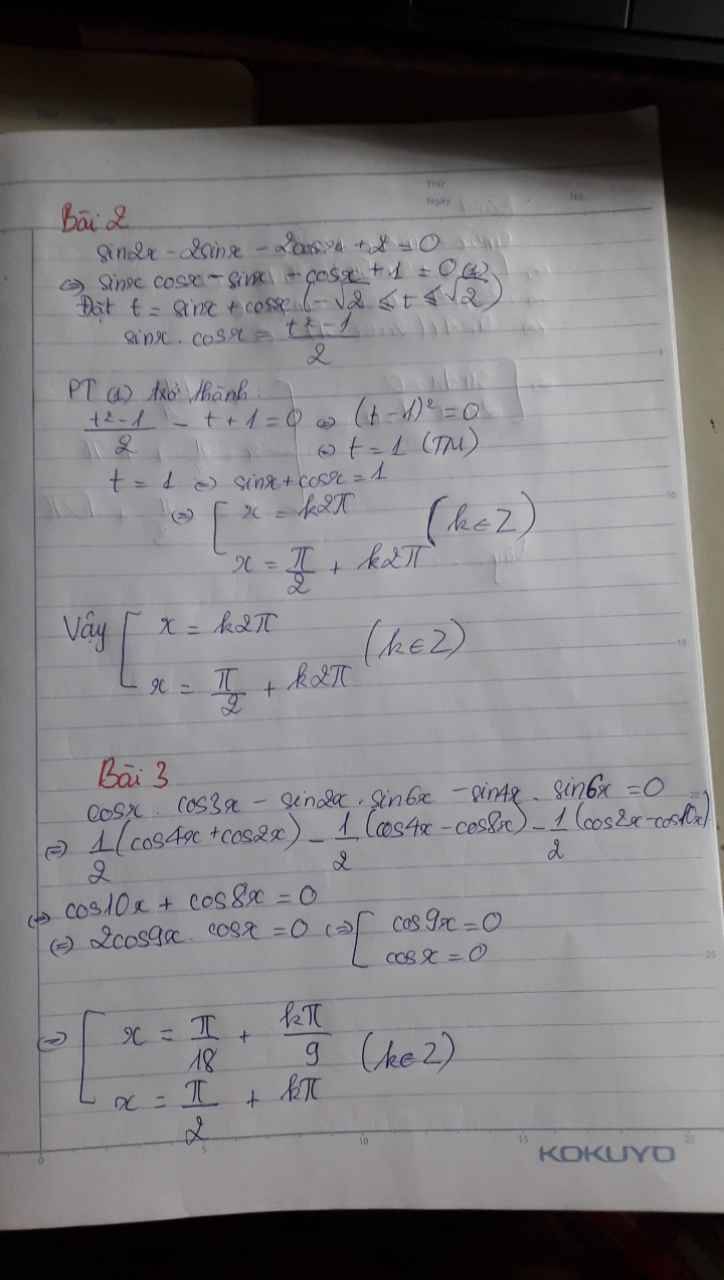 Bài 2
sin2x - 2sinx - 2cosx + 2 = 0
⇔ sinx cosx - sinx - cosx + 1 = 0 (1)
Đặt t = sinx + cosx (-√2 ≤ t ≤ √2)
sinx . cosx = (t² - 1)/2
PT (1) trở thành
(t² - 1)/2 - t + 1 = 0 ⇔ (t - 1)² = 0
⇔ t = 1 (TM)
t = 1 ⇔ sinx + cosx = 1
⇔ [ x = k2π
x = π/2 + k2π (k∈Z)
Vậy [ x = k2π
x = π/2 + k2π (k∈Z)
Bài 3
cosx . cos3x - sin2x . sin6x - sin4x . sin6x = 0
⇔ 1/2 (cos4x + cos2x) - 1/2 (cos4x - cos8x) - 1/2 (cos2x - cos10x)
⇔ cos10x + cos8x = 0
⇔ 2cos9x . cosx = 0 ⇔ [ cos9x = 0
cosx = 0
⇔ [ x = π/18 + kπ/9
x = π/2 + kπ (k∈Z)
5 10 15 20
KOKUYO